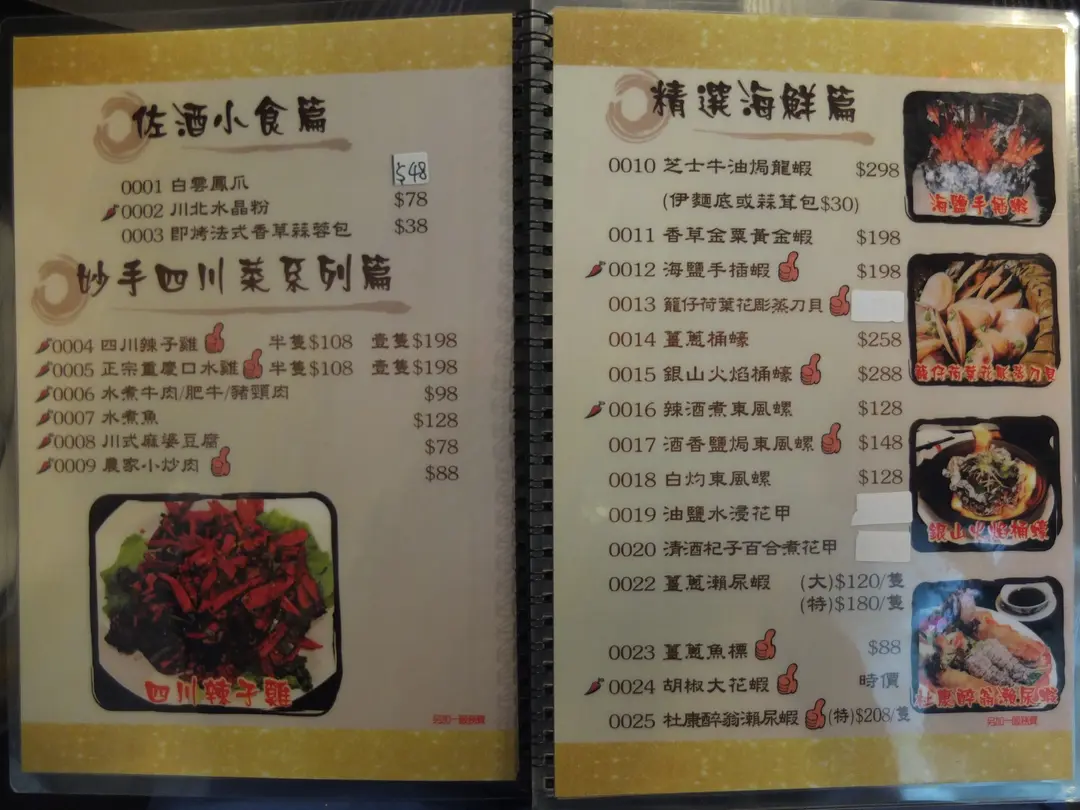 佐酒小食篇
0001 白雲鳳爪 $48
0002 川北水晶粉 $78
0003 即烤法式香草蒜蓉包 $38
妙手四川菜系列篇
0004 四川辣子雞 半隻$108 壹隻$198
0005 正宗重慶口水雞 半隻$108 壹隻$198
0006 水煮牛肉/肥牛/豬頸肉 $98
0007 水煮魚 $128
0008 川式麻婆豆腐 $78
0009 農家小炒肉 $88
四川辣子雞
另加一服務費
精選海鮮篇
0010 芝士牛油焗龍蝦 $298
(伊麵底或蒜茸包$30)
0011 香草金粟黃金蝦 $198
0012 海鹽手插蝦 $198
0013 籠仔荷葉花彫蒸刀貝
0014 薑蔥桶蠔 $258
0015 銀山火焰桶蠔 $288
0016 辣酒煮東風螺 $128
0017 酒香鹽焗東風螺 $148
0018 白灼東風螺 $128
0019 油鹽水浸花甲
0020 清酒杞子百合煮花甲
0022 薑蔥瀨尿蝦 (大)$120/隻
(特)$180/隻
0023 薑蔥魚標 $88
0024 胡椒大花蝦 時價
0025 杜康醉翁瀨尿蝦 (特)$208/隻
海鹽手插蝦
籠仔荷葉花彫蒸刀貝
銀山火焰桶蠔
杜康醉翁瀨尿蝦
另加一服務費